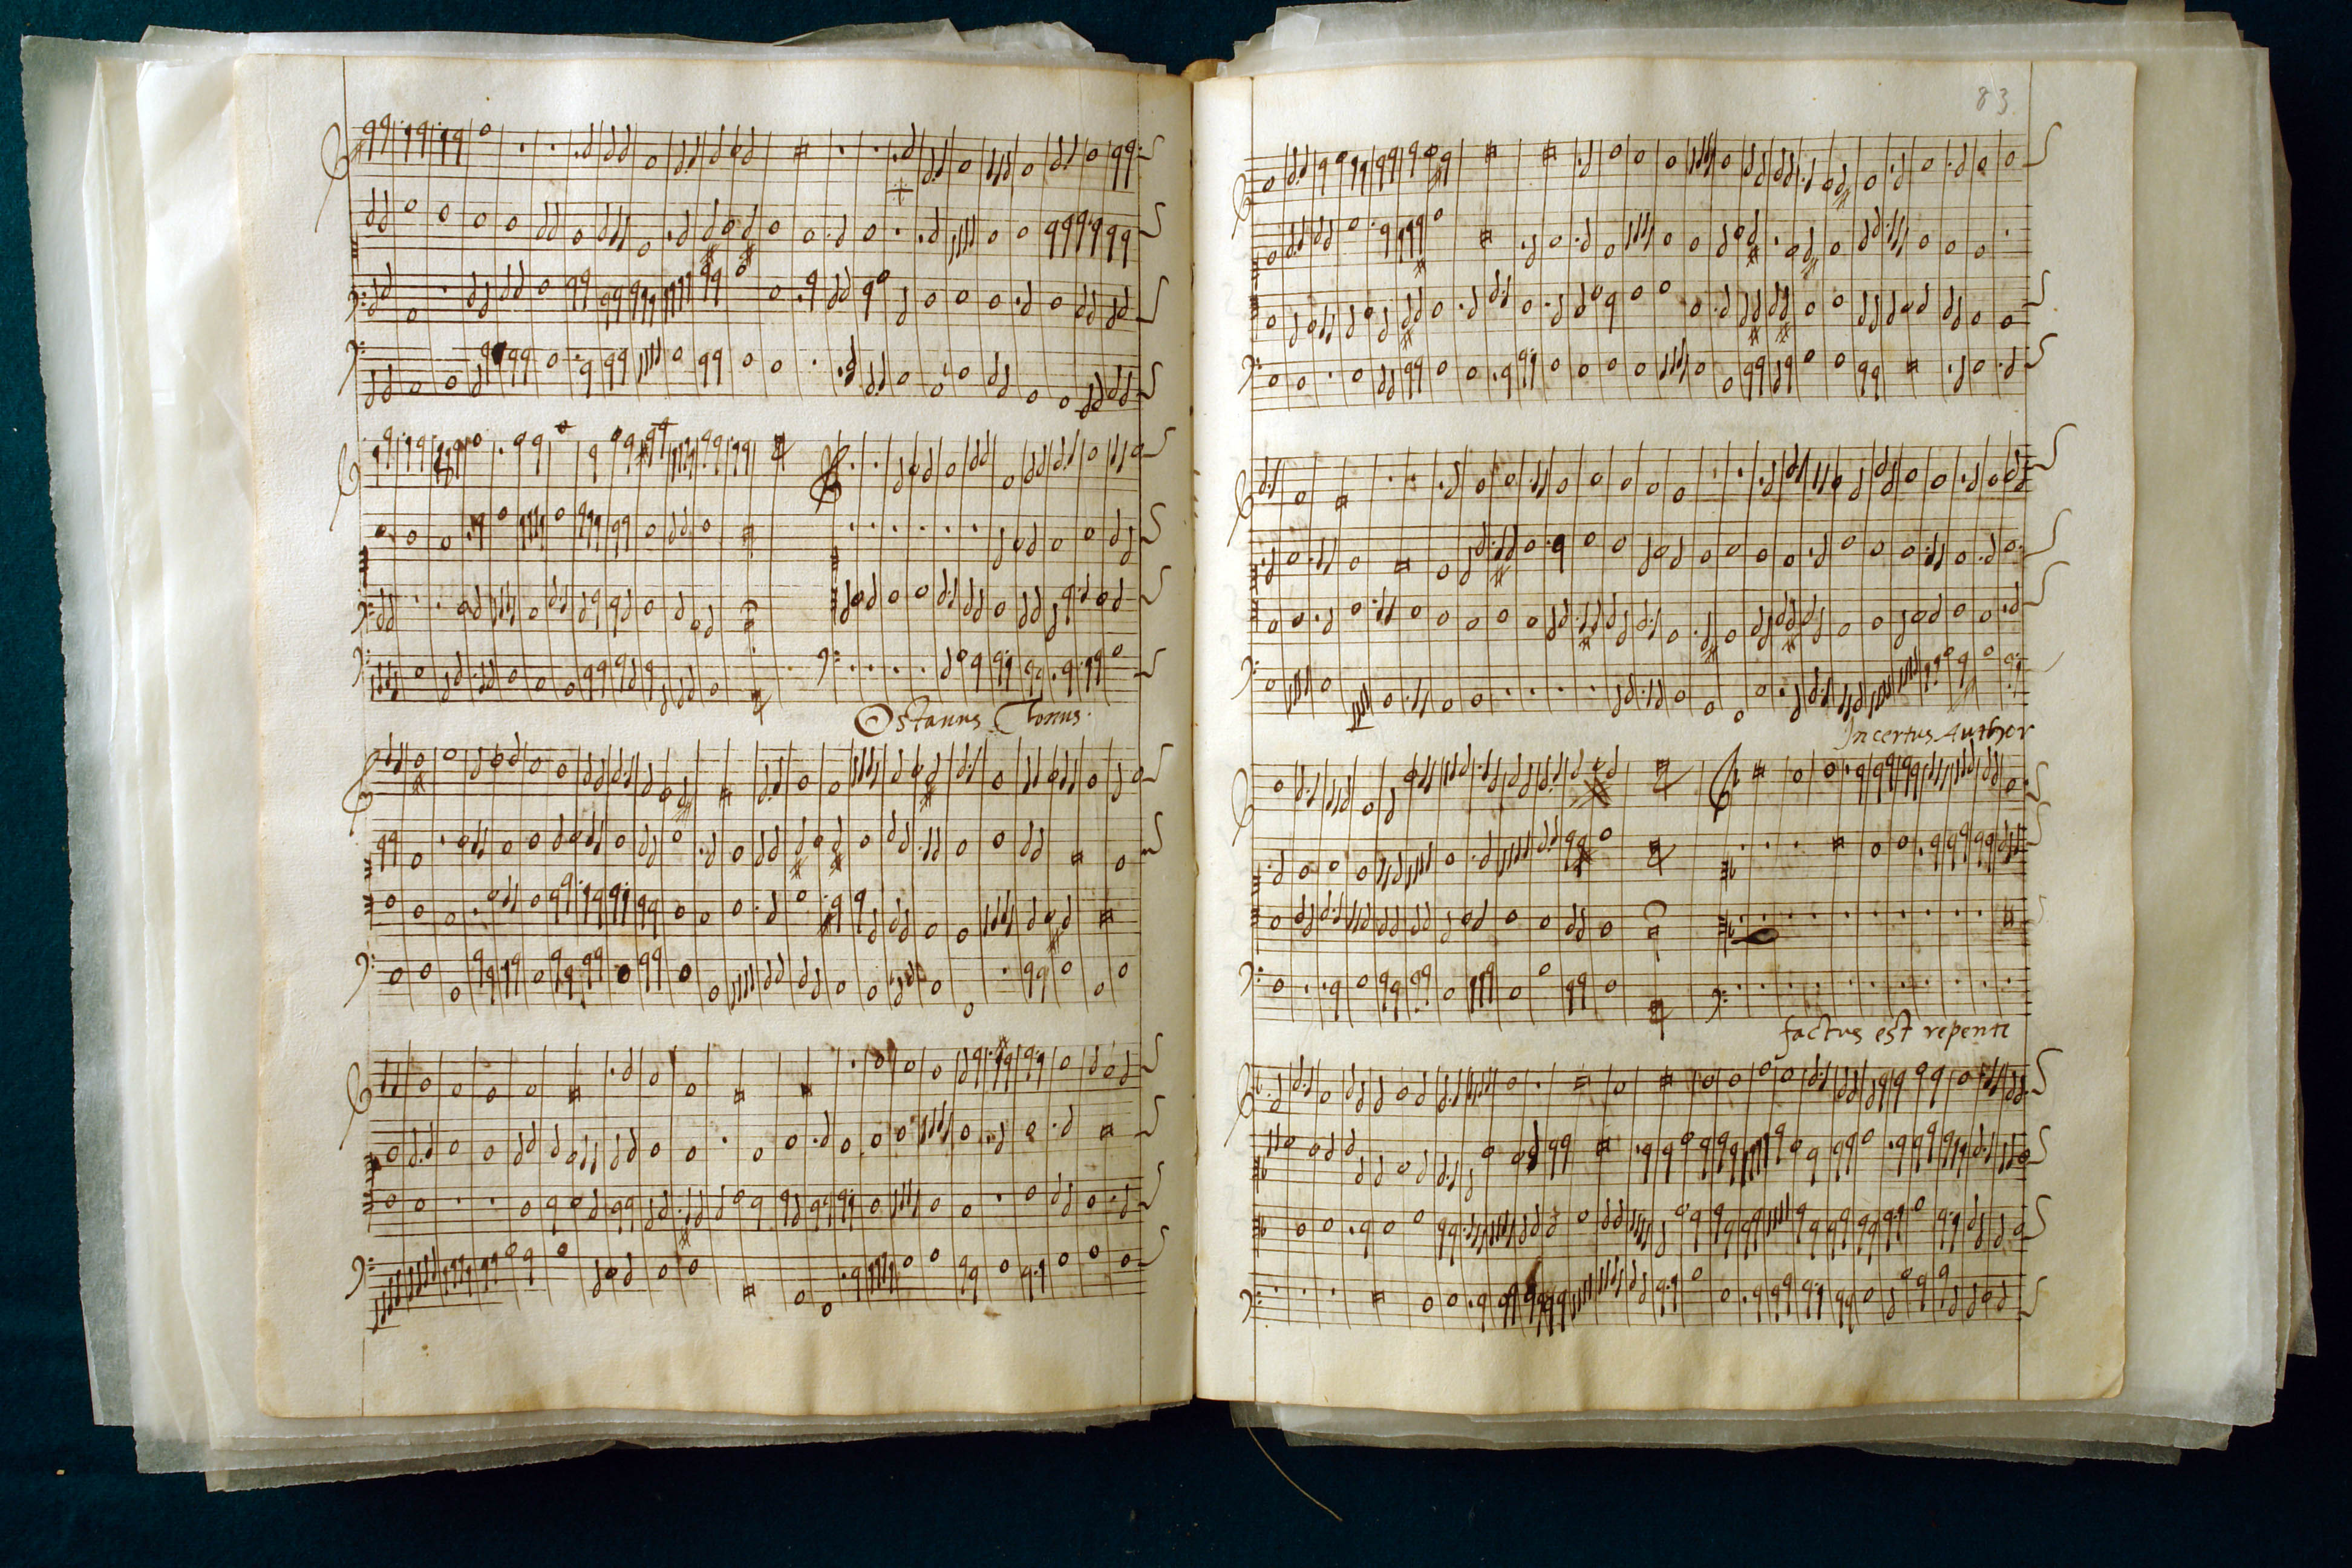 Octauus Tonus.
83
Incertus Author
factus est repente